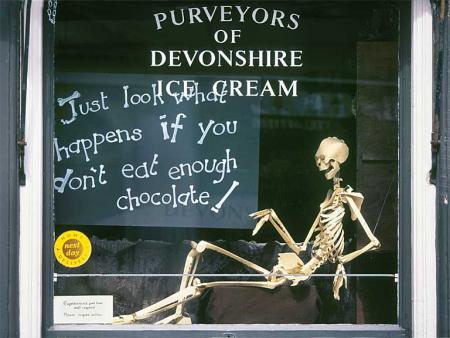 PURVEYORS
OF
DEVONSHIRE
ICE CREAM
Just look what
happens if you
don't eat enough
chocolate!
next
day